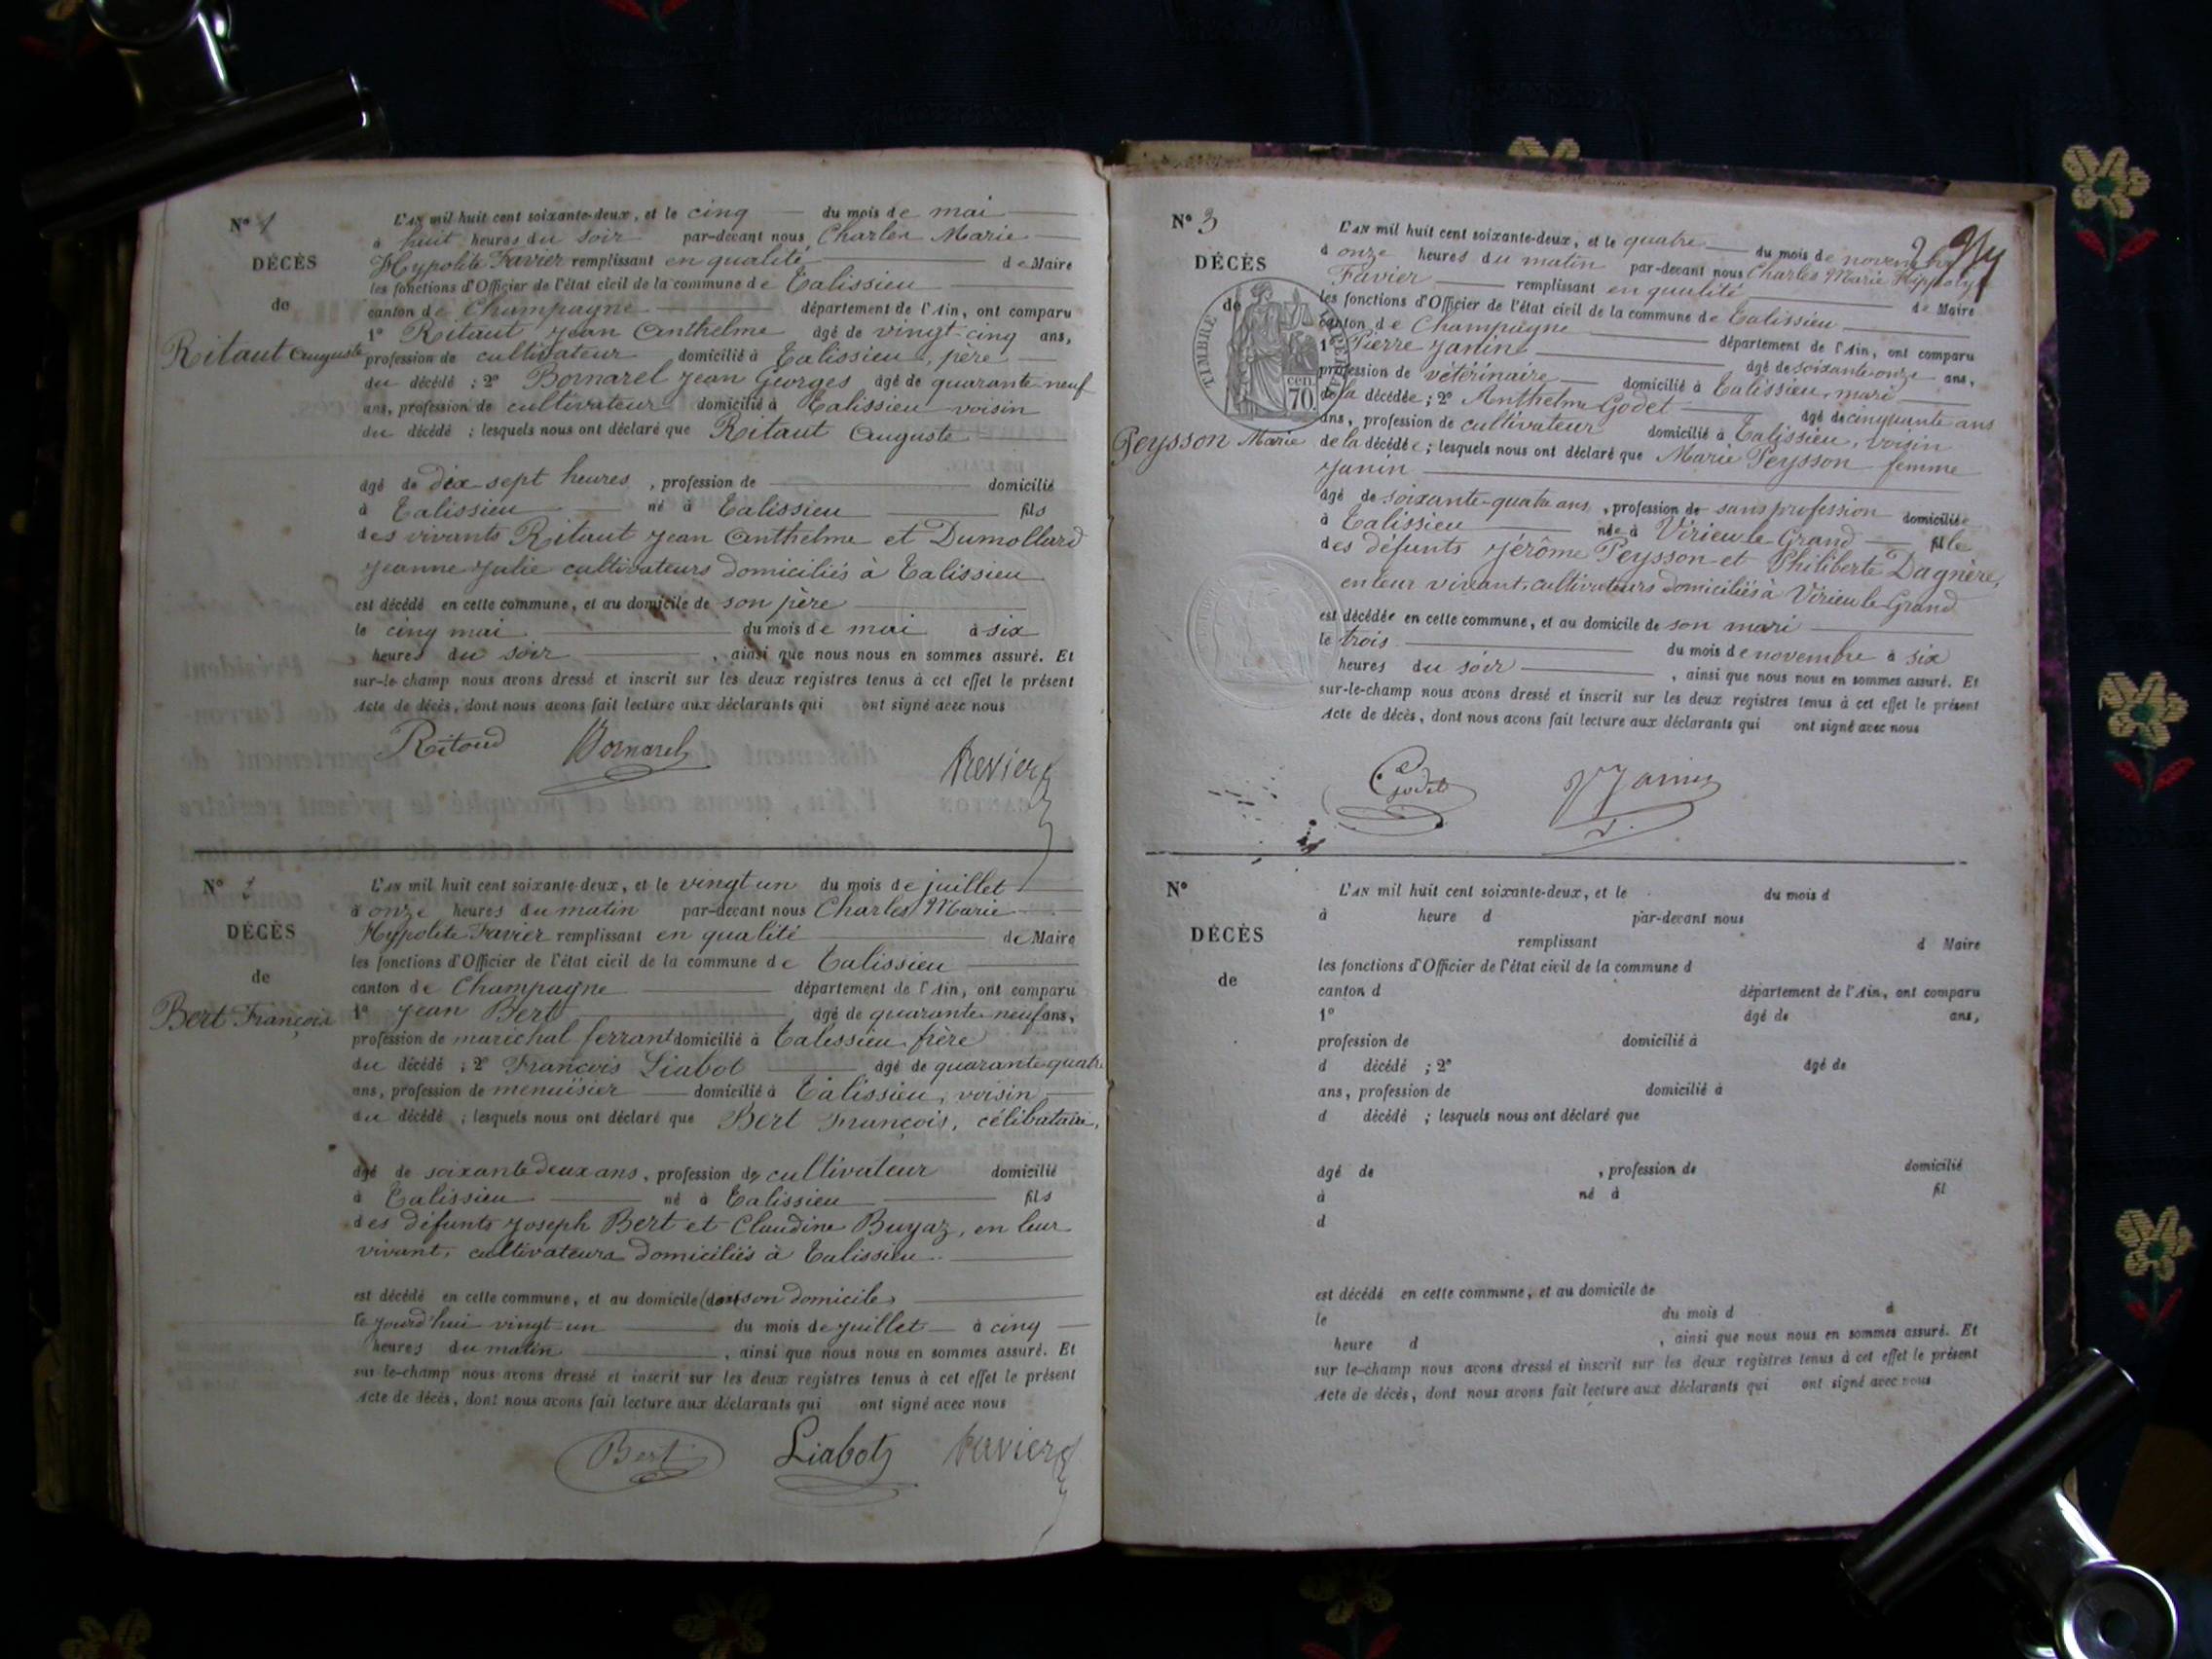 N° 1
DÉCÈS
de
Ritaut Auguste
L'AN mil huit cent soixante-deux, et le cinq du mois de mai
à huit heures du soir par-devant nous Charles Marie
Hypolite Favier remplissant en qualité de Maire
les fonctions d'Officier de l'état civil de la commune de Talissieu
canton de Champagne département de l'Ain, ont comparu
1° Ritaut Jean Anthelme âgé de vingt-cinq ans,
profession de cultivateur domicilié à Talissieu, père
du décédé ; 2° Bornarel Jean Georges âgé de quarante neuf
ans, profession de cultivateur domicilié à Talissieu voisin
du décédé ; lesquels nous ont déclaré que Ritaut Auguste
âgé de dix-sept heures , profession de domicilié
à Talissieu né à Talissieu fils
des vivants Ritaut Jean Anthelme et Dumollard
Jeanne Julie cultivateurs domiciliés à Talissieu
est décédé en cette commune, et au domicile de son père
le cinq mai du mois de mai à six
heures du soir , ainsi que nous nous en sommes assuré. Et
sur-le-champ nous avons dressé et inscrit sur les deux registres tenus à cet effet le présent
Acte de décès, dont nous avons fait lecture aux déclarants qui ont signé avec nous
Ritaud Bornarel Favier
N°
DÉCÈS
de
Bert François
L'AN mil huit cent soixante-deux, et le vingt un du mois de juillet
à onze heures du matin par-devant nous Charles Marie
Hypolite Favier remplissant en qualité de Maire
les fonctions d'Officier de l'état civil de la commune de Talissieu
canton de Champagne département de l'Ain, ont comparu
1° Jean Bert âgé de quarante neuf ans,
profession de maréchal ferrant domicilié à Talissieu frère
du décédé ; 2° François Liabot âgé de quarante quatre
ans, profession de menuisier domicilié à Talissieu, voisin
du décédé ; lesquels nous ont déclaré que Bert François, célibataire,
âgé de soixante deux ans, profession de cultivateur domicilié
à Talissieu né à Talissieu fils
des défunts Joseph Bert et Claudine Buyaz, en leur
vivant, cultivateurs domiciliés à Talissieu.
est décédé en cette commune, et au domicile (dans son domicile)
le jourd'hui vingt-un du mois de juillet à cinq
heures du matin , ainsi que nous nous en sommes assuré. Et
sur-le-champ nous avons dressé et inscrit sur les deux registres tenus à cet effet le présent
Acte de décès, dont nous avons fait lecture aux déclarants qui ont signé avec nous
Bert Liabot Favier
N° 3
DÉCÈS
de
TIMBRE IMPÉRIAL
cen. 70.
Peysson Marie
L'AN mil huit cent soixante-deux, et le quatre du mois de novembre
à onze heures du matin par-devant nous Charles Marie Hippolyte
Favier remplissant en qualité de Maire
les fonctions d'Officier de l'état civil de la commune de Talissieu
canton de Champagne département de l'Ain, ont comparu
1° Pierre Janin âgé de soixante onze ans,
profession de vétérinaire domicilié à Talissieu, mari
de la décédée ; 2° Anthelme Godet âgé de cinquante ans
ans, profession de cultivateur domicilié à Talissieu, voisin
de la décédée ; lesquels nous ont déclaré que Marie Peysson femme
Janin
âgé de soixante-quatre ans , profession de sans profession domiciliée
à Talissieu née à Virieu le Grand fille
des défunts Jérôme Peysson et Philiberte Dagnère,
en leur vivant, cultivateurs domiciliés à Virieu le Grand
est décédée en cette commune, et au domicile de son mari
le trois du mois de novembre à six
heures du soir , ainsi que nous nous en sommes assuré. Et
sur-le-champ nous avons dressé et inscrit sur les deux registres tenus à cet effet le présent
Acte de décès, dont nous avons fait lecture aux déclarants qui ont signé avec nous
Godet Janin
N°
DÉCÈS
de
L'AN mil huit cent soixante-deux, et le du mois d
à heure d par-devant nous
remplissant d Maire
les fonctions d'Officier de l'état civil de la commune d
canton d département de l'Ain, ont comparu
1° âgé de ans,
profession de domicilié à
d décédé ; 2° âgé de
ans, profession de domicilié à
d décédé ; lesquels nous ont déclaré que
âgé de , profession de domicilié
à né à fil
d
est décédé en cette commune, et au domicile de
le du mois d à
heure d , ainsi que nous nous en sommes assuré. Et
sur le-champ nous avons dressé et inscrit sur les deux registres tenus à cet effet le présent
Acte de décès, dont nous avons fait lecture aux déclarants qui ont signé avec nous